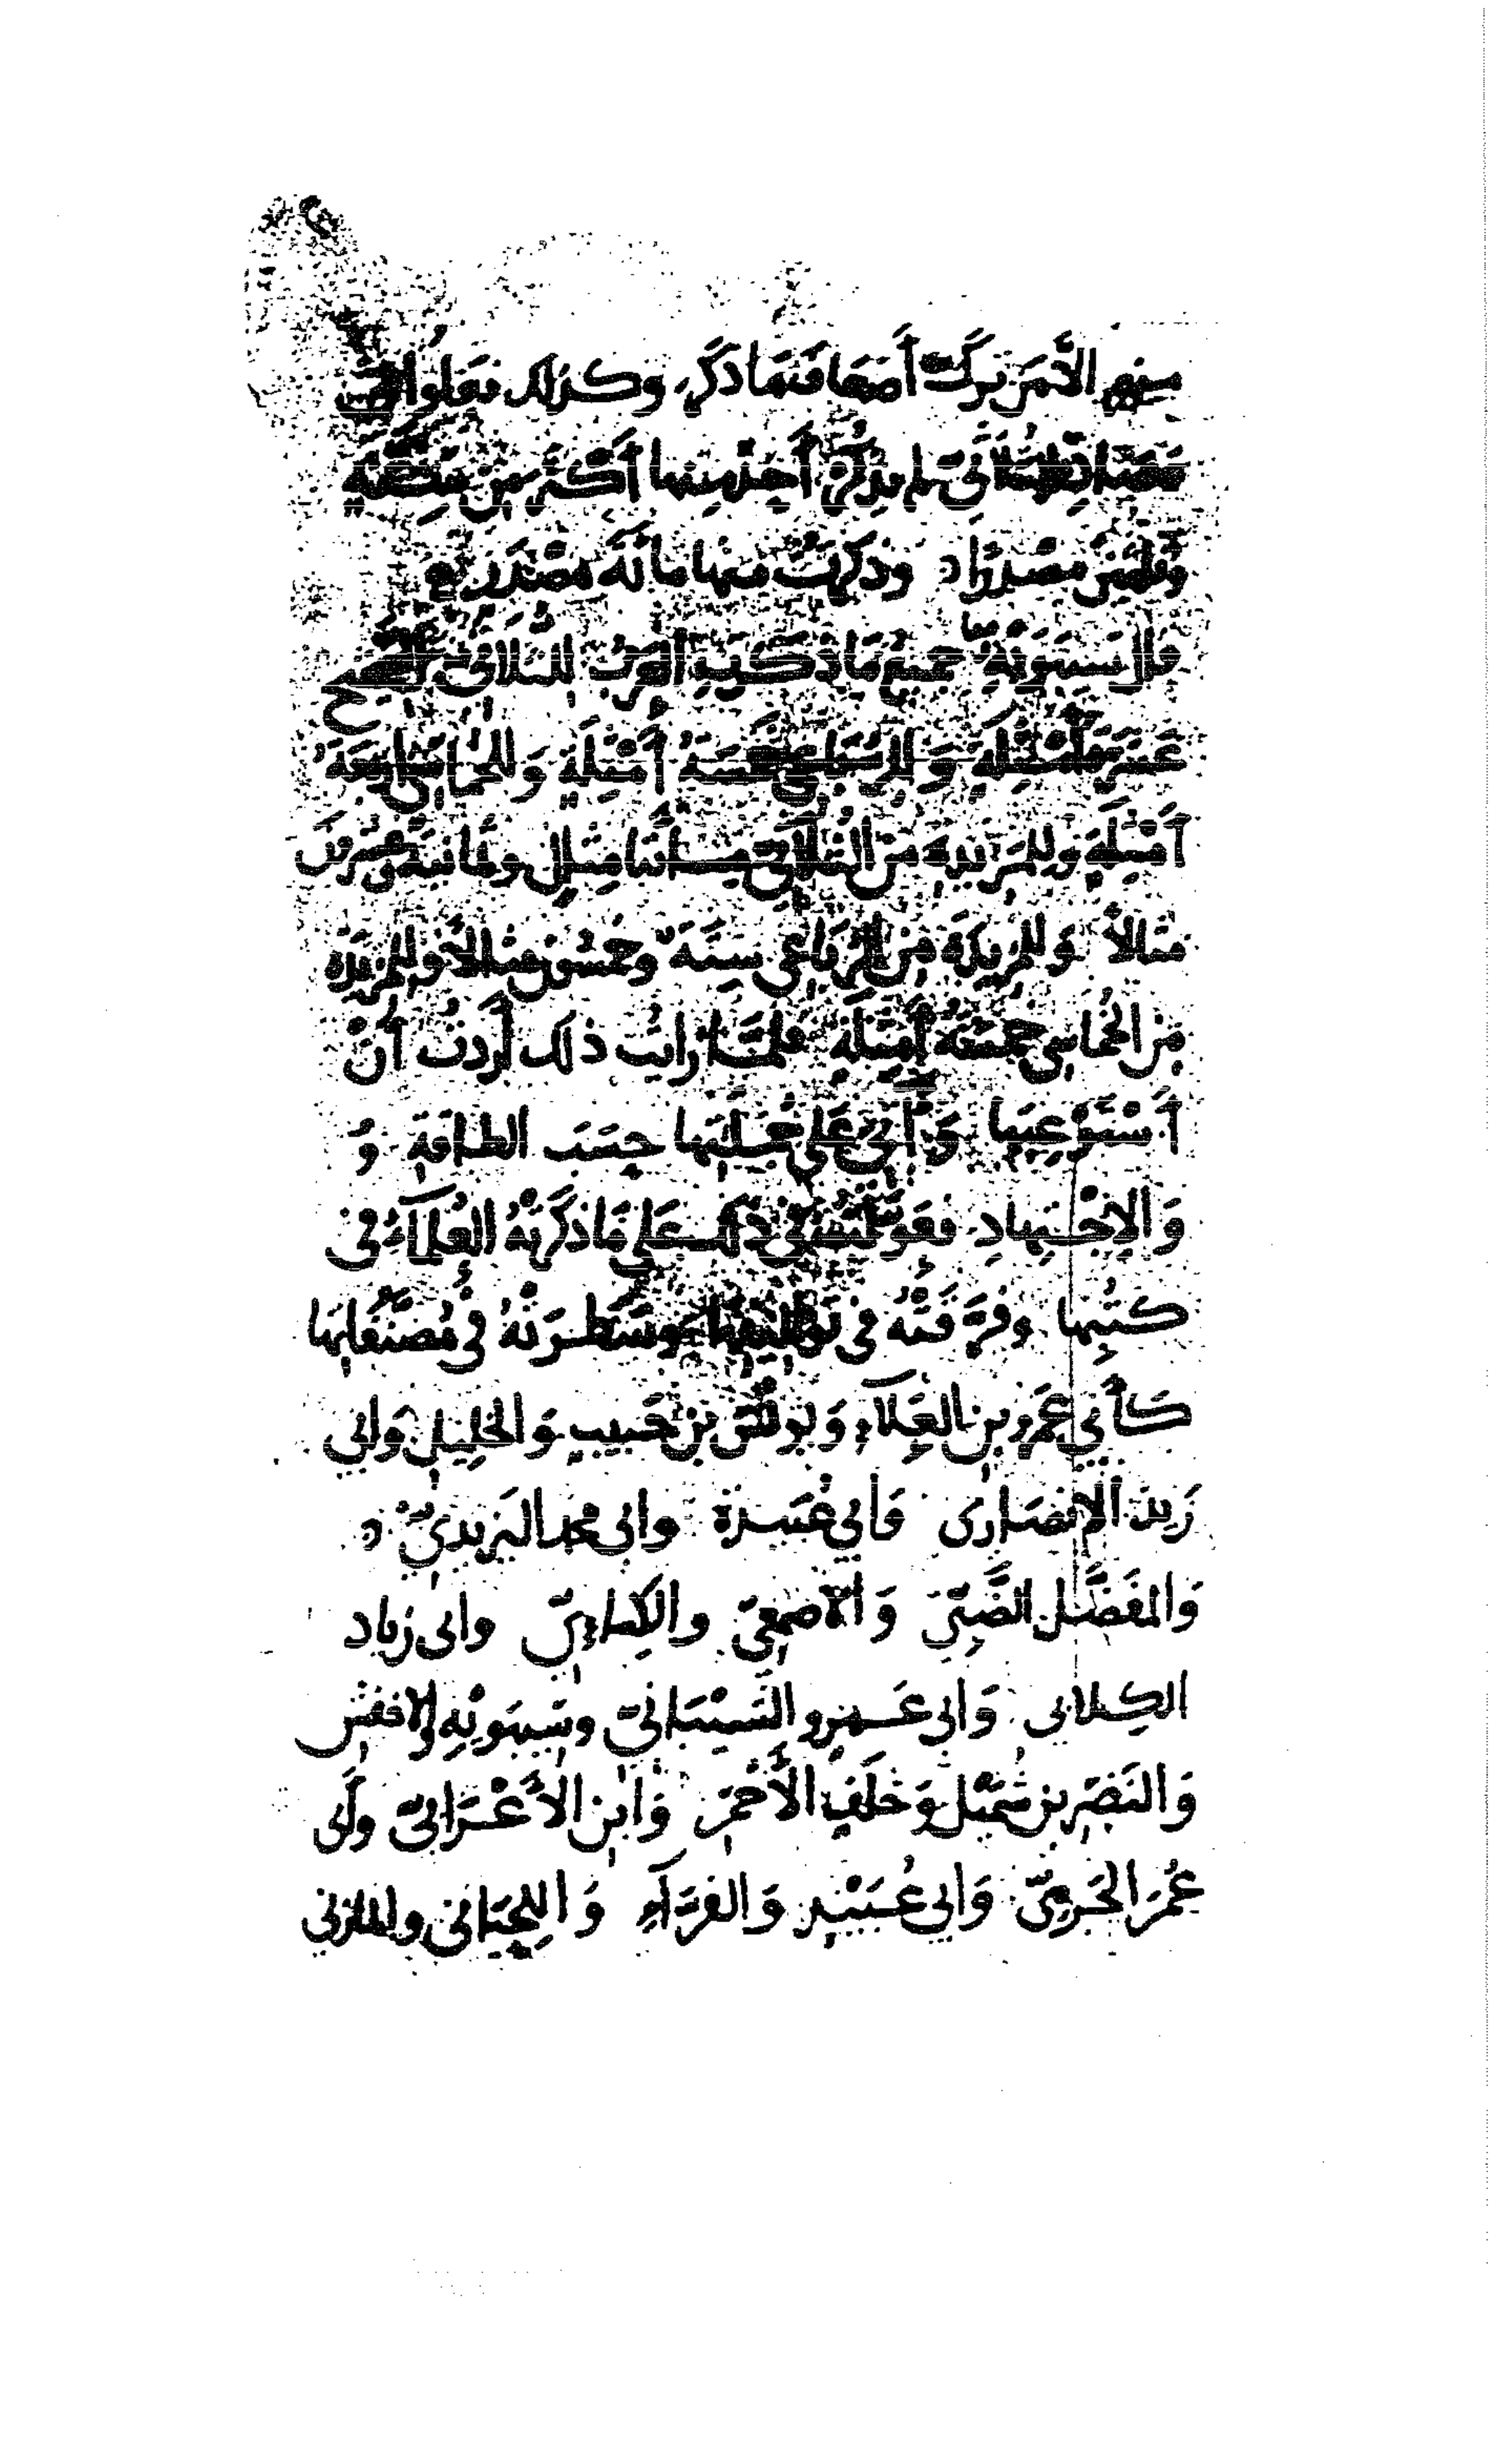 منهم إلا من ترك أضعاف ما ذكر وكذلك فعلوا في
مصادر الثلاثي لم يذكر أحد منها أكثر من ستة
وثلثين مصدرًا وذكرت منها مائة مصدر
قال سيبويه جميع ما ذكرت العرب للثلاثي
عشرة أمثلة وللرباعي خمسة أمثلة وللخماسي أربعة
أمثلة وللمزيدة من الثلاثي مثال وثمانية
مثالا وللمزيدة من الرباعي ستة وخمسون مثالا وللمزيدة
من الخماسي خمسة أمثلة فلما رأيت ذلك أردت أن
أستوعبها وآتي على جملتها حسب الطاقة و
والاجتهاد فعولت في ذلك على ما ذكرته العلماء في
كتبها وفرقته في تواليفها وسطرته في مصنفاتها
كأبي عمرو بن العلاء ويونس بن حبيب والخليل وابي
زيد الانصارى وأبي عبيدة وابي محمد اليزيدي
والمفضل الضبي والأصمعي والكسائي وابى زياد
الكلابى وابى عمرو الشيباني وسيبويه والاخفش
والنضر بن شميل وخلف الأحمر وابن الأعرابي وأبى
عمر الجرمي وابى عبيد والفراء واللحياني والمازني